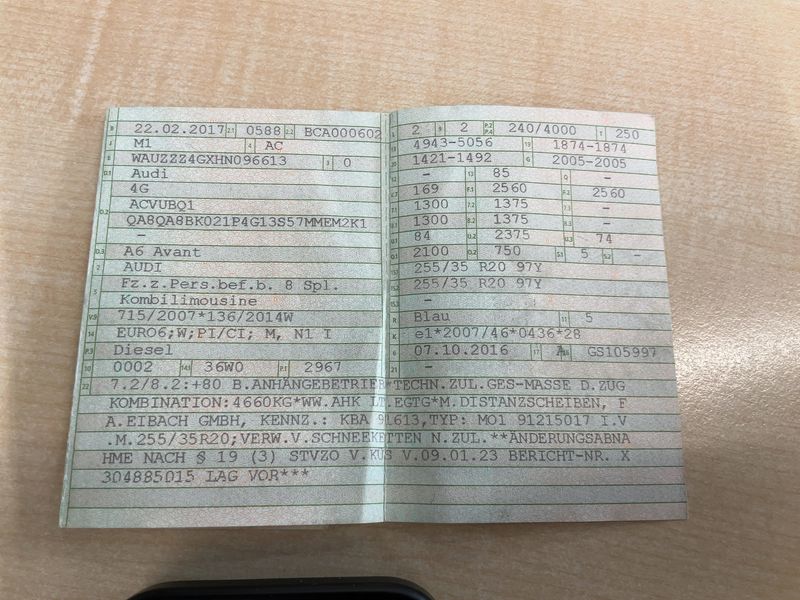 B 22.02.2017 2.1 0588 2.2 BCA000602
J M1 4 AC
E WAUZZZ4GXHN096613 3 0
D.1 Audi
4G
D.2 ACVUBQ1
QA8QA8BK021P4G13S57MMEM2K1
-
D.3 A6 Avant
2 AUDI
5 Fz.z.Pers.bef.b. 8 Spl.
Kombilimousine
V.9 715/2007*136/2014W
14 EURO6;W;PI/CI; M, N1 I
P.3 Diesel
10 0002 14.1 36W0 P.1 2967
L 2 9 2 P.2 P.4 240/4000 T 250
18 4943-5056 19 1874-1874
20 1421-1492 G 2005-2005
12 - 13 85 Q -
V.7 169 F.1 2560 F.2 2560
7.1 1300 7.2 1375 7.3 -
8.1 1300 8.2 1375 8.3 -
U.1 84 U.2 2375 U.3 74
O.1 2100 O.2 750 S.1 5 S.2 -
15.1 255/35 R20 97Y
15.2 255/35 R20 97Y
15.3 -
R Blau 11 5
K e1*2007/46*0436*28
6 07.10.2016 17 A 16 GS105997
21 -
22 7.2/8.2:+80 B.ANHÄNGEBETRIEB*TECHN.ZUL.GES-MASSE D.ZUG
KOMBINATION:4660KG*WW.AHK LT.EGTG*M.DISTANZSCHEIBEN, F
A.EIBACH GMBH, KENNZ.: KBA 91613,TYP: MO1 91215017 I.V
.M.255/35R20;VERW.V.SCHNEEKETTEN N.ZUL.**ÄNDERUNGSABNA
HME NACH § 19 (3) STVZO V.KÜS V.09.01.23 BERICHT-NR. X
304885015 LAG VOR***